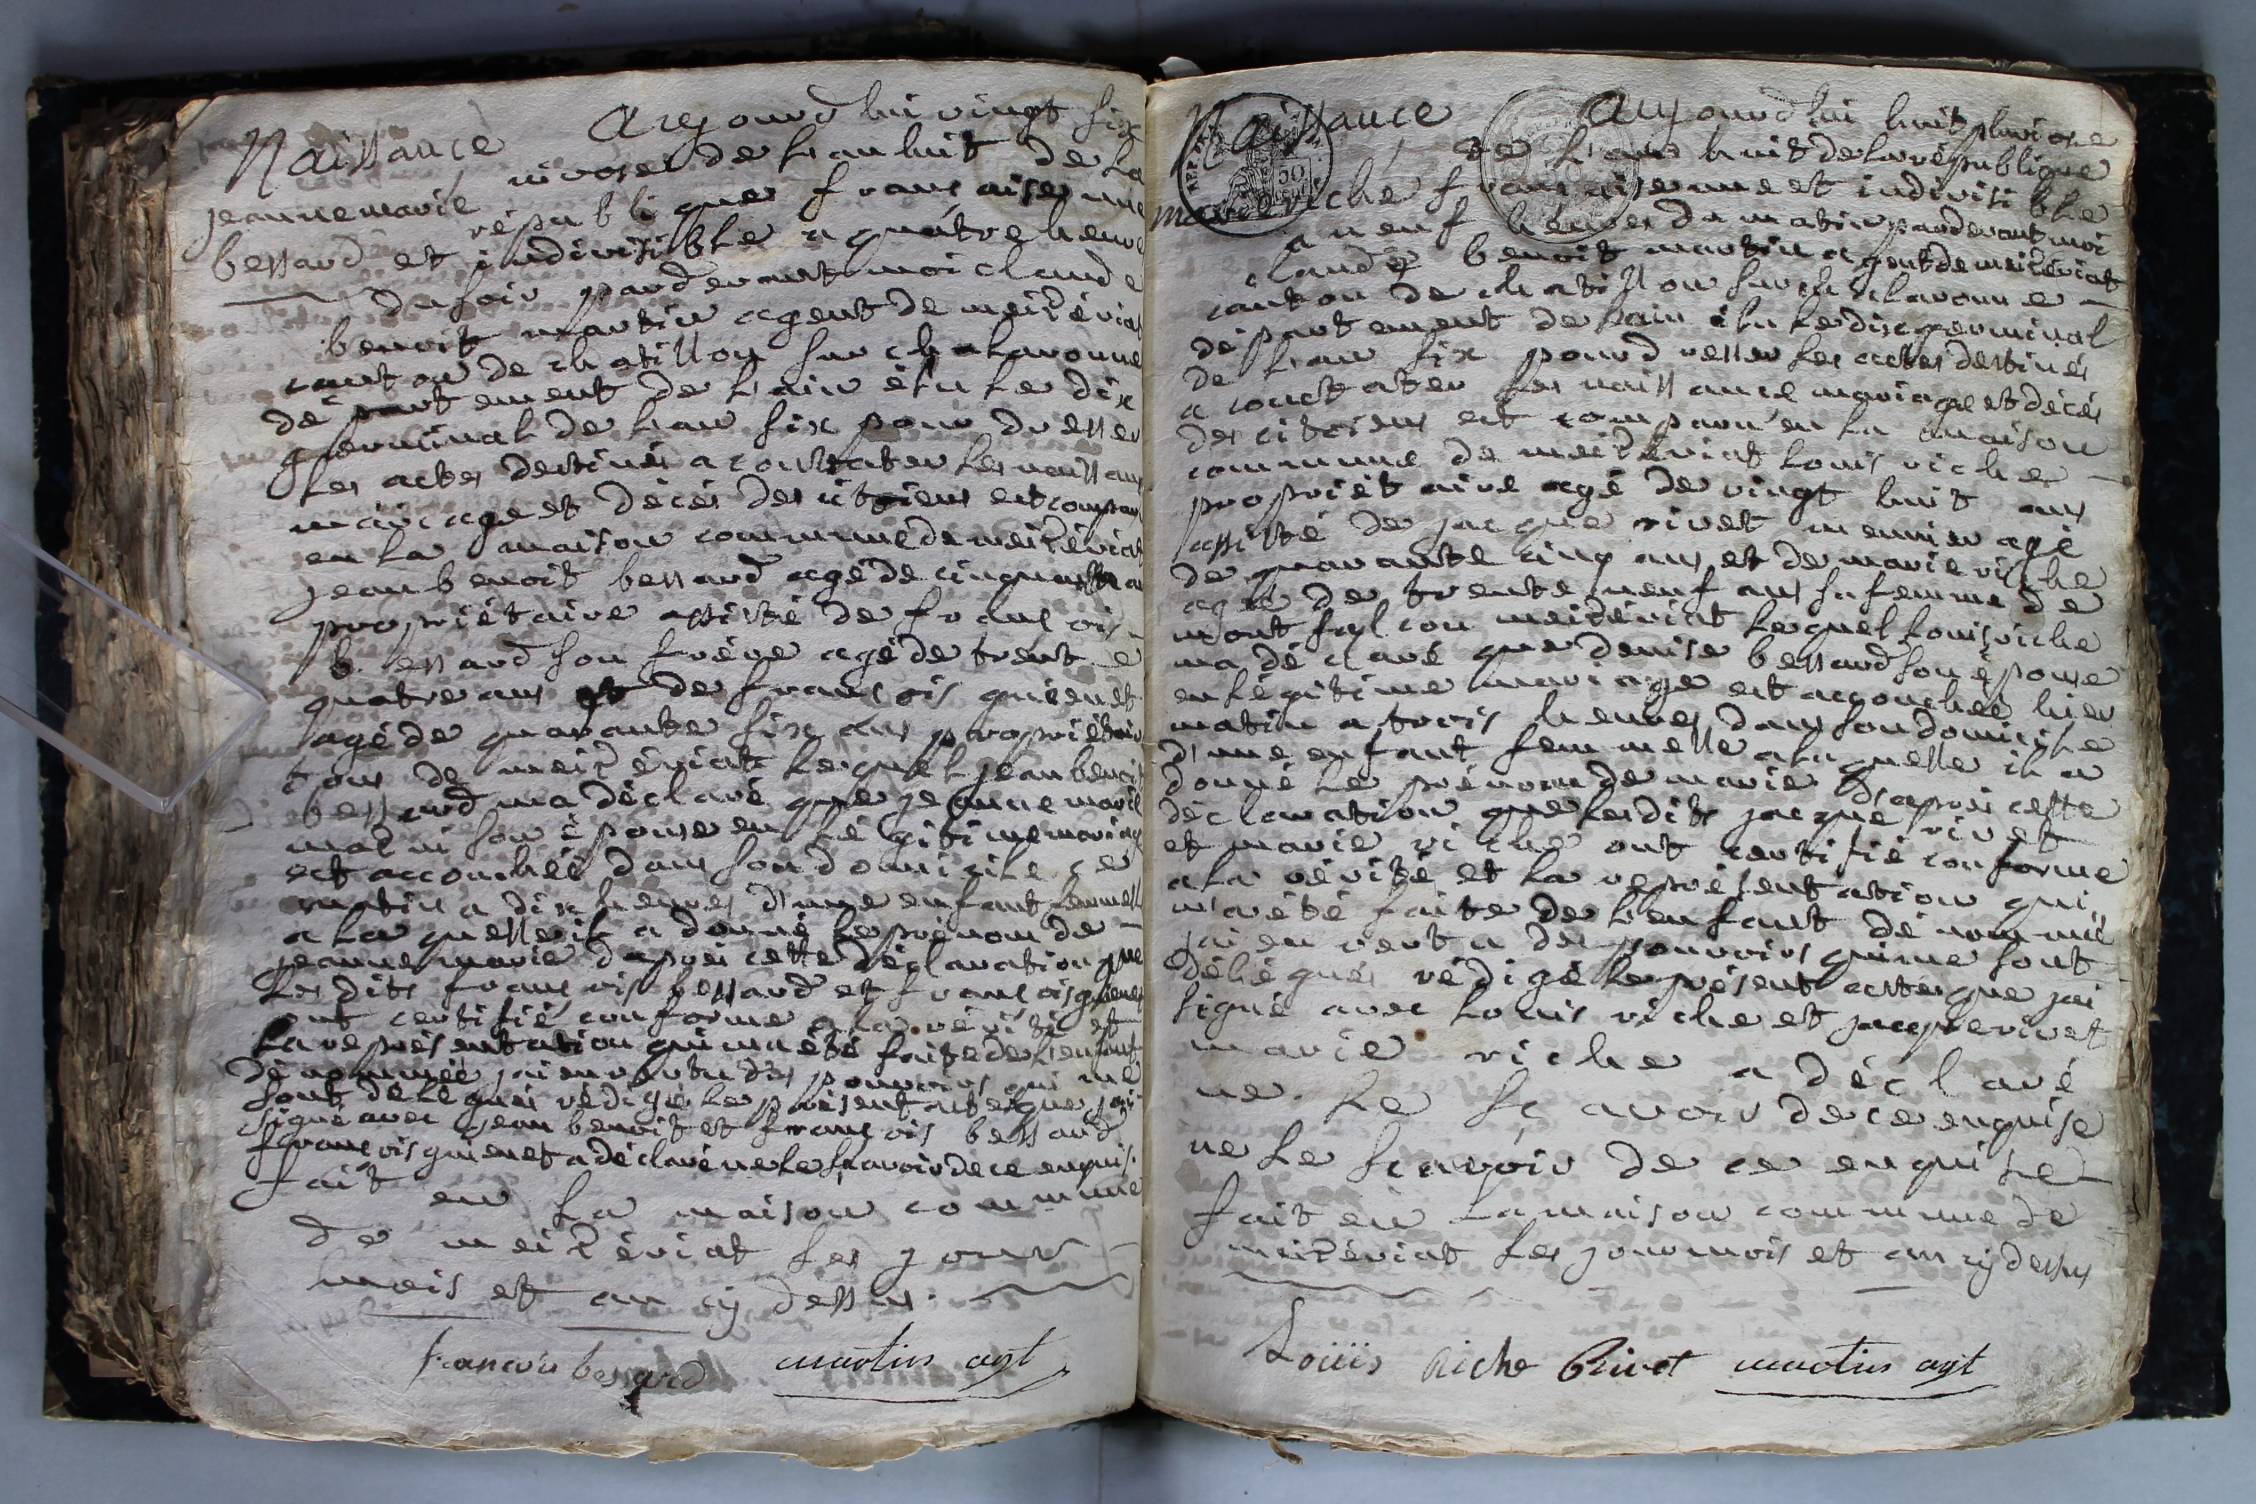 Naissance
jeanne marie
bessard
Aujourd hui vingt six
nivose de l'an huit de la
république fransaise une
et indivisible a quatre heure
du soir pardevant moi claude
benoit martin agent de meizériat
canton de chatillon sur chalaronne
département de l'ain élu le dix
germinal de l'an six pour dresser
les actes destinés a constater les naissanc
mariage et décés des citoiens est comparu
en la maison commune de meizériat
jean benoit bessard agé de cinquante an
propriétaire assisté de fransois
bessard son frère agé de trente
quatre ans et de fransois guienet
agé de quarante six ans propriétair
tous de meizériat lequel jean benoit
bessard ma déclaré que jeanne marie
son épouse en légitime mariage
est accouchéé dans son domicile ce
matin a dix heures d'une enfant femmell
a la quelle il a donné le prénom de
jeanne marie d'aprés cette déclaration que
les dits fransois bessard et fransois guienet
ont certifié conforme a la vérité et
la représentation qui ma été faite de l'enfant
dénommée jai en vertu des pouvoirs qui me
sont délégués rédigé le présent acte que jai
signé avec jean benoit et fransois bessard
fransois guienet a déclaré ne le scavoir de ce enquis
fait en la maison commune
de meizériat les jour
mois et an cy dessus.
francois bessard martin agt
Naissance
marie riche
Aujourd hui huit pluviose
de l'an huit de la république
fransaise une et indivisible
a neuf heures du matin pardevant moi
claude benoit martin agent de meizériat
canton de chatillon sur chalaronne
département de l'ain élu le dix germinal
de l'an six pour dresser les actes destinés
a constater les naissance mariage et décés
des citoiens est comparu en la maison
commune de meizériat louis riche
propriétaire agé de vingt huit ans
assisté de jacque rivet meunier agé
de quarante cinq ans et de marie riche
agée de trente neuf ans sa femme de
montfalcon meizériat lequel louis riche
ma déclaré que denise bessard son épouse
en légitime mariage est accouchéé hier
matin a trois heures dans son domicile
d'une enfant femmelle a laquelle il a
donné le prénom de marie d'aprés cette
déclaration que lesdits jacque rivet
et marie riche ont certifié conforme
a la vérité et la représentation qui
m'a été faite de l'enfant dénommé
jai en vertu des pouvoirs qui me sont
délégués rédigé le présent acte que jai
signé avec louis riche et jacque rivet
marie riche a déclaré
ne le scavoir de ce enquise
ne le scavoir de ce enquise
fait en la maison commune de
meizériat les jour mois et an cy dessus
Louis Riche Rivet martin agt